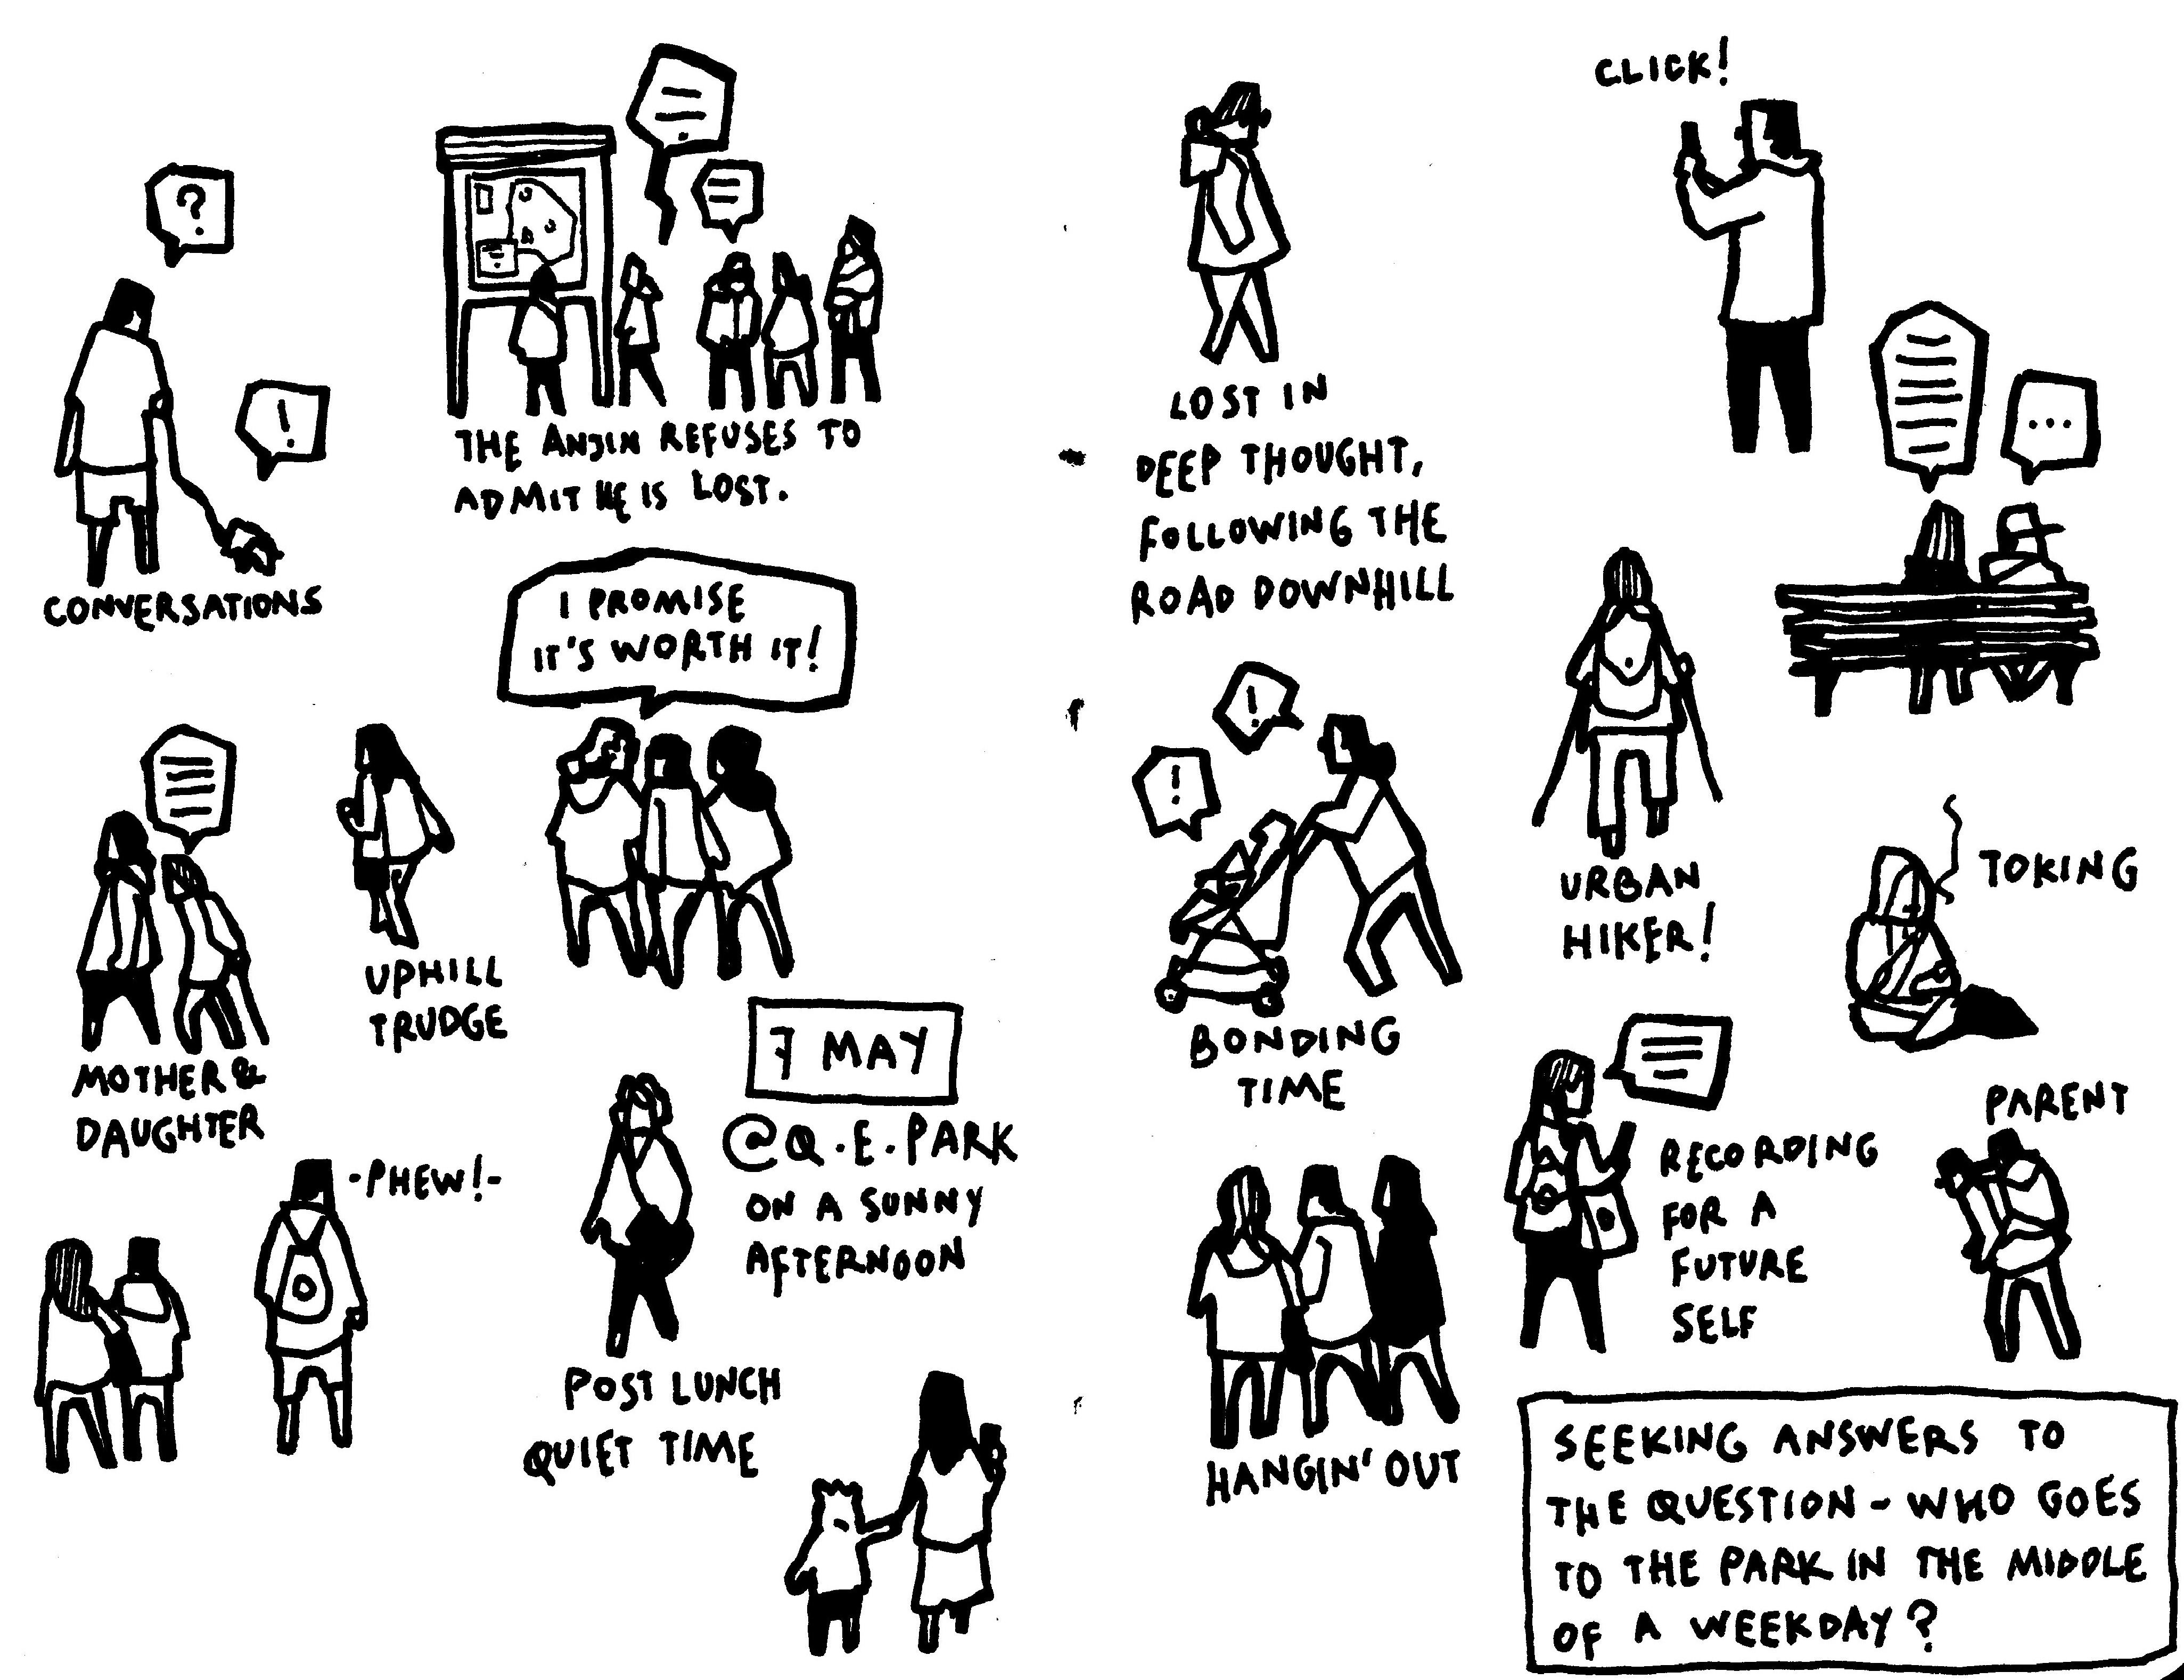 ?
!
CONVERSATIONS
THE ANJIN REFUSES TO
ADMIT HE IS LOST.
I PROMISE
IT'S WORTH IT!
MOTHER &
DAUGHTER
UPHILL
TRUDGE
-PHEW!-
7 MAY
@Q.E.PARK
ON A SUNNY
AFTERNOON
POST LUNCH
QUIET TIME
LOST IN
DEEP THOUGHT,
FOLLOWING THE
ROAD DOWNHILL
CLICK!
...
!
!
BONDING
TIME
URBAN
HIKER!
TOKING
RECORDING
FOR A
FUTURE
SELF
PARENT
HANGIN' OUT
SEEKING ANSWERS TO
THE QUESTION - WHO GOES
TO THE PARK IN THE MIDDLE
OF A WEEKDAY?